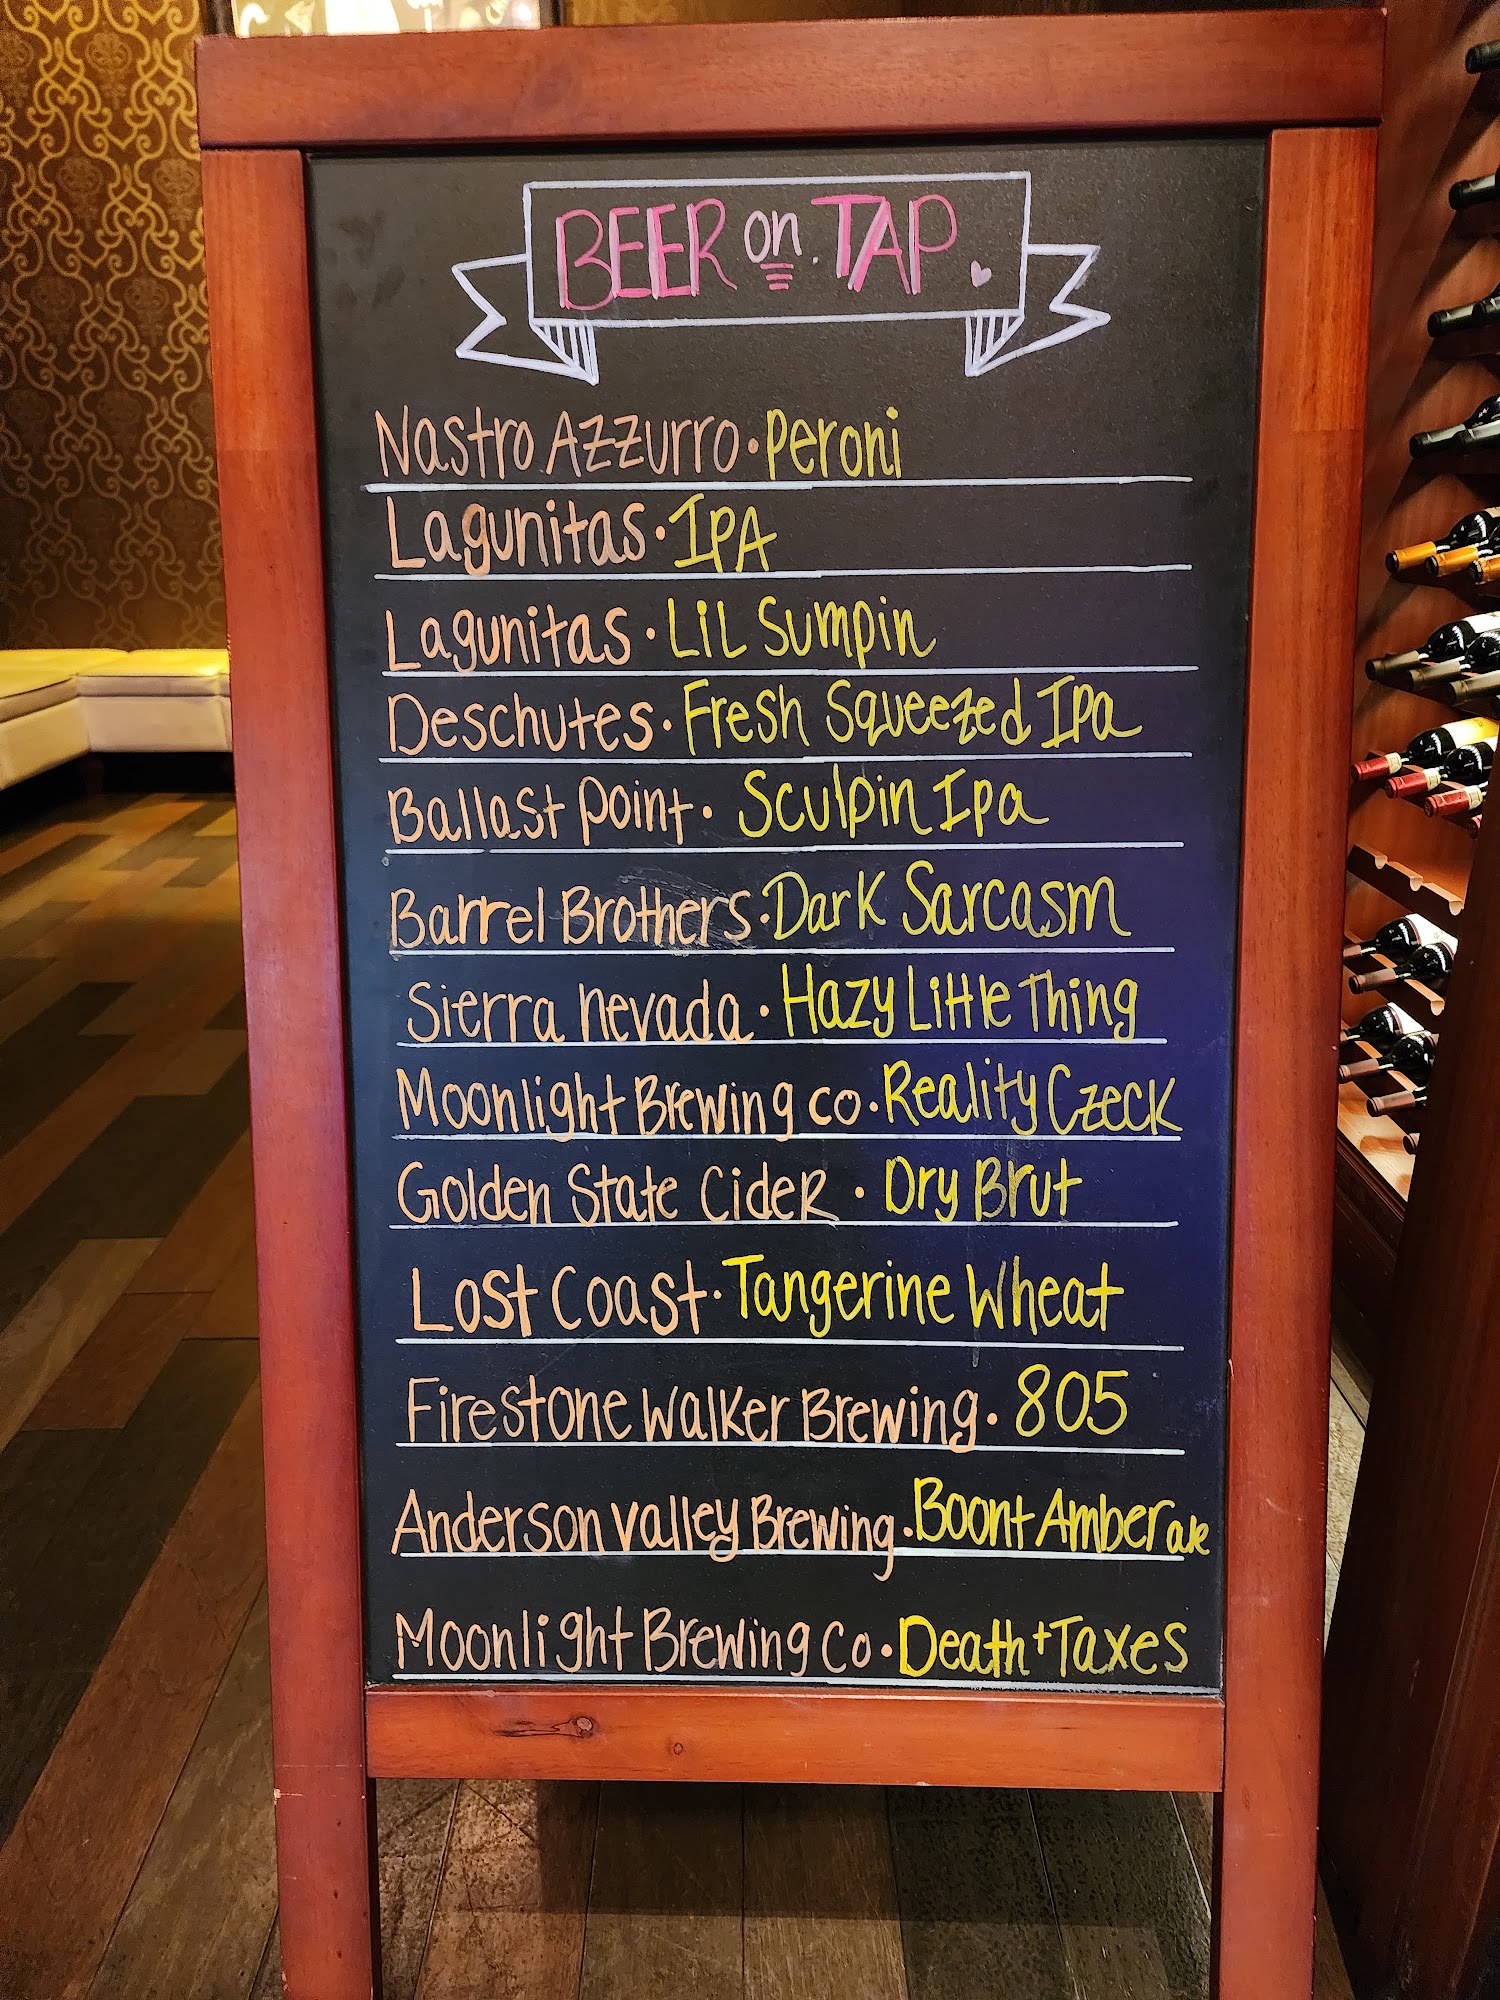 BEER on TAP
Nastro Azzurro • Peroni
Lagunitas • IPA
Lagunitas • Lil Sumpin
Deschutes • Fresh Squeezed IPa
Ballast Point • Sculpin Ipa
Barrel Brothers • Dark Sarcasm
Sierra nevada • Hazy Little Thing
Moonlight Brewing co • Reality Czeck
Golden State Cider • Dry Brut
Lost Coast • Tangerine Wheat
Firestone Walker Brewing • 805
Anderson valley Brewing • Boont Amber ale
Moonlight Brewing Co • Death + Taxes